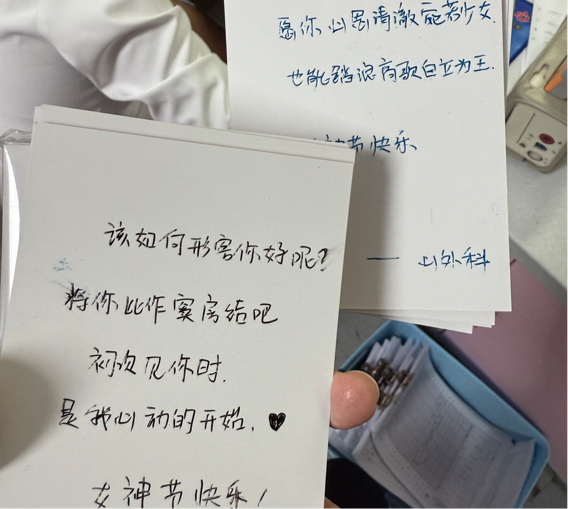 愿你心思清澈宛若少女.
也能踏浪高歌自立为王.
神节快乐
— 心外科
该如何形容你好呢?
将你比作窦房结吧
初次见你时.
是我心动的开始. ♥
女神节快乐!